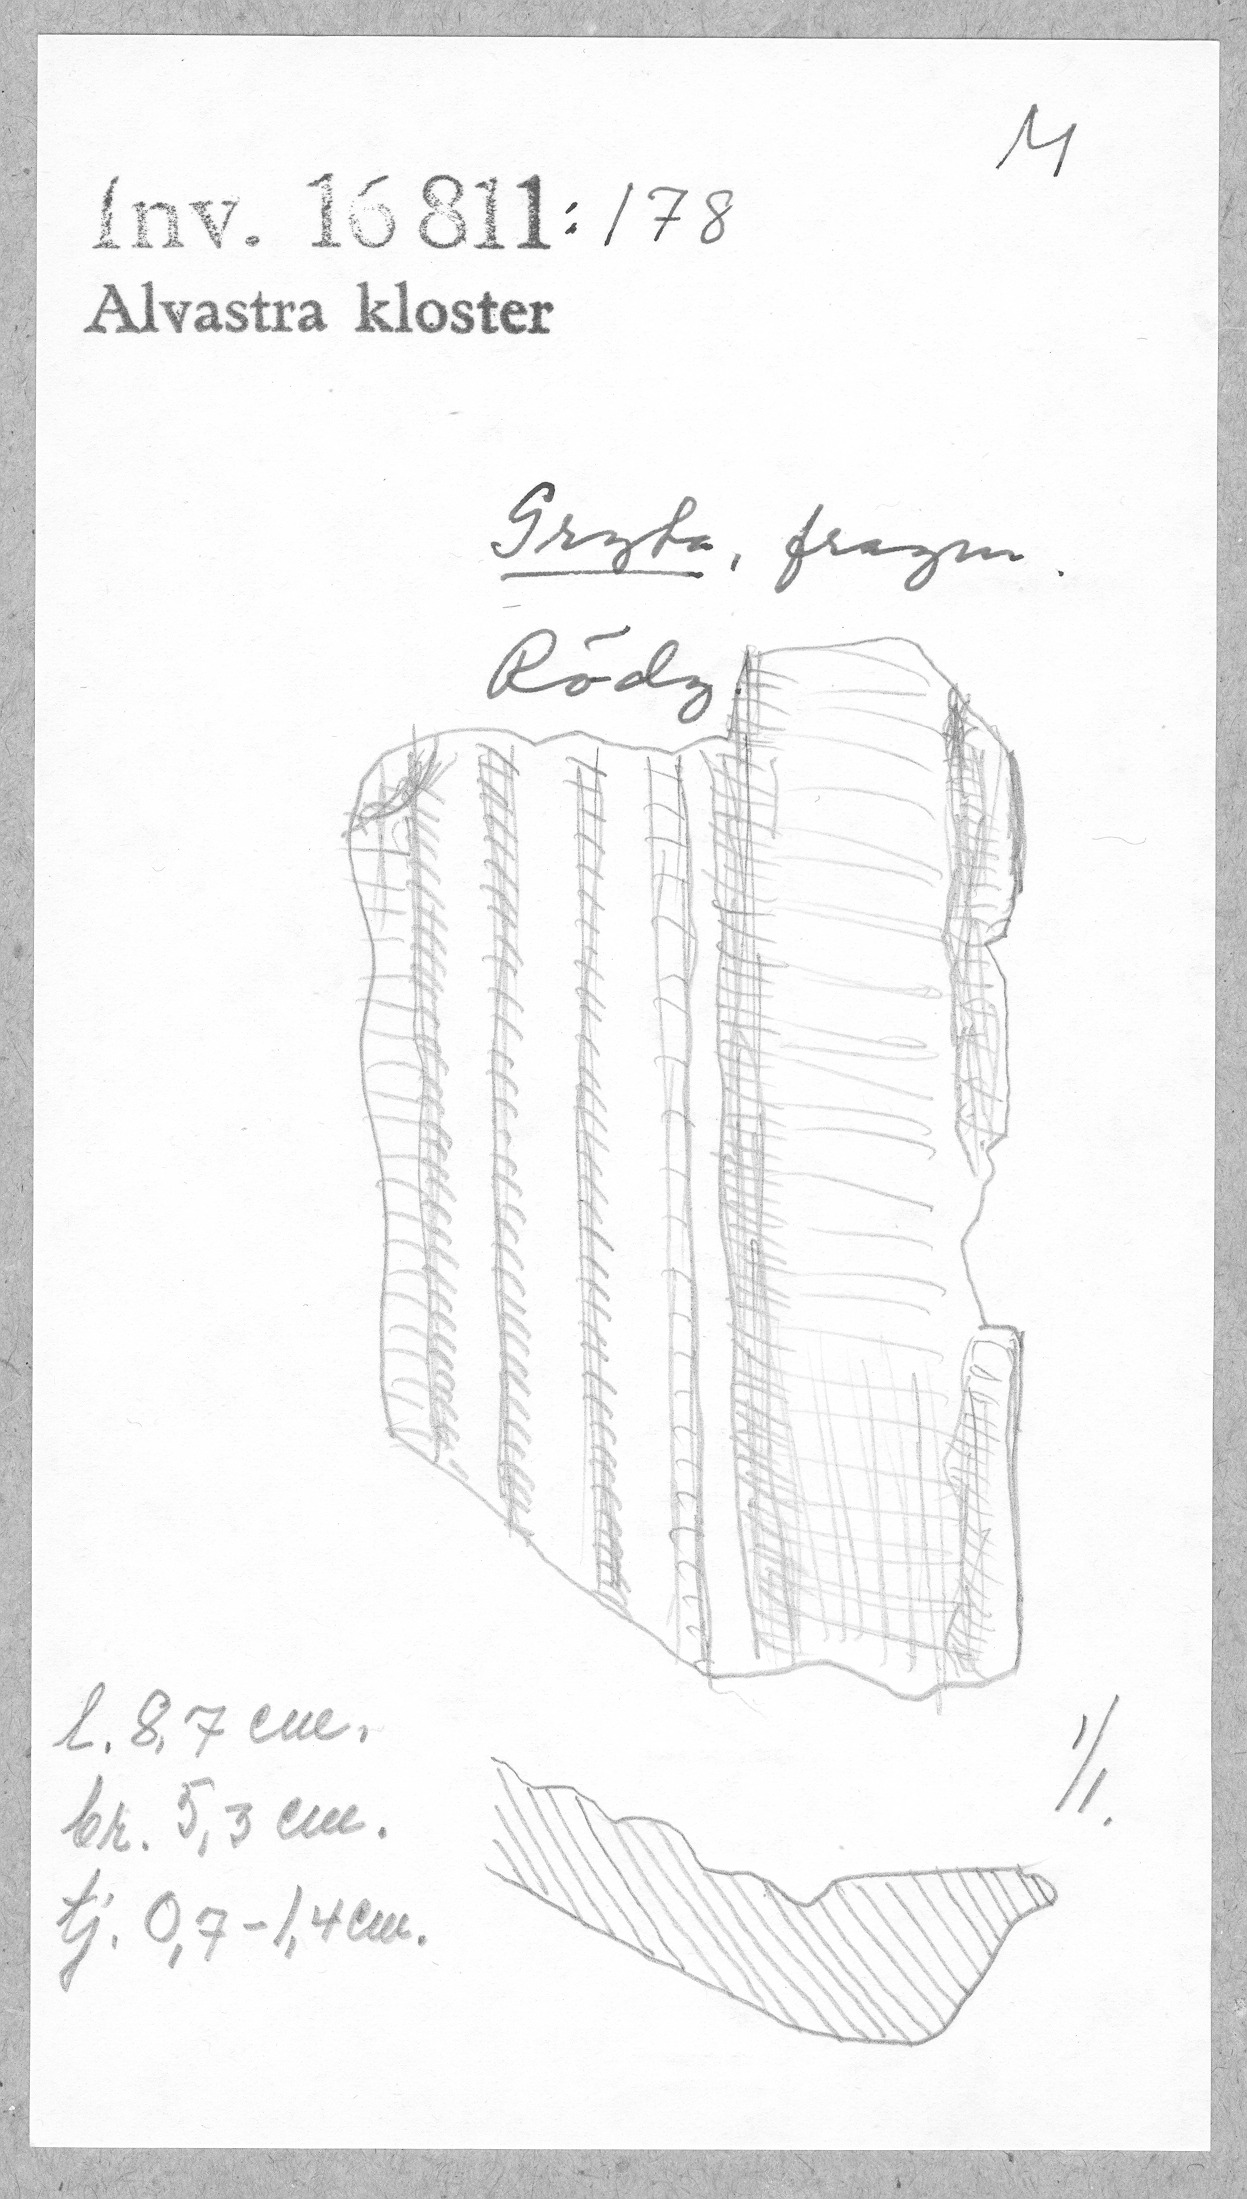 M
Inv. 16811:178
Alvastra kloster
Gryta, fragm.
Rödg
l. 8,7 cm.
br. 5,3 cm.
tj. 0,7-1,4 cm.
1/1.